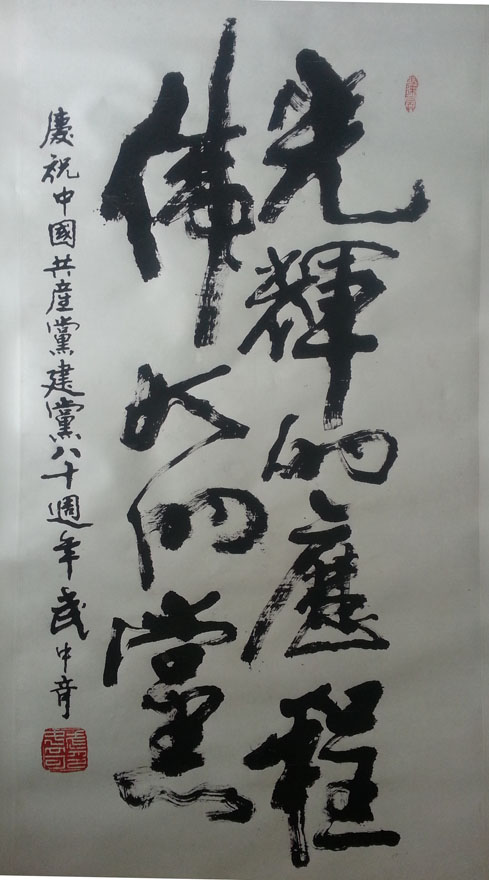 光輝的歷程
偉大的黨
慶祝中國共產黨建黨八十週年武中奇